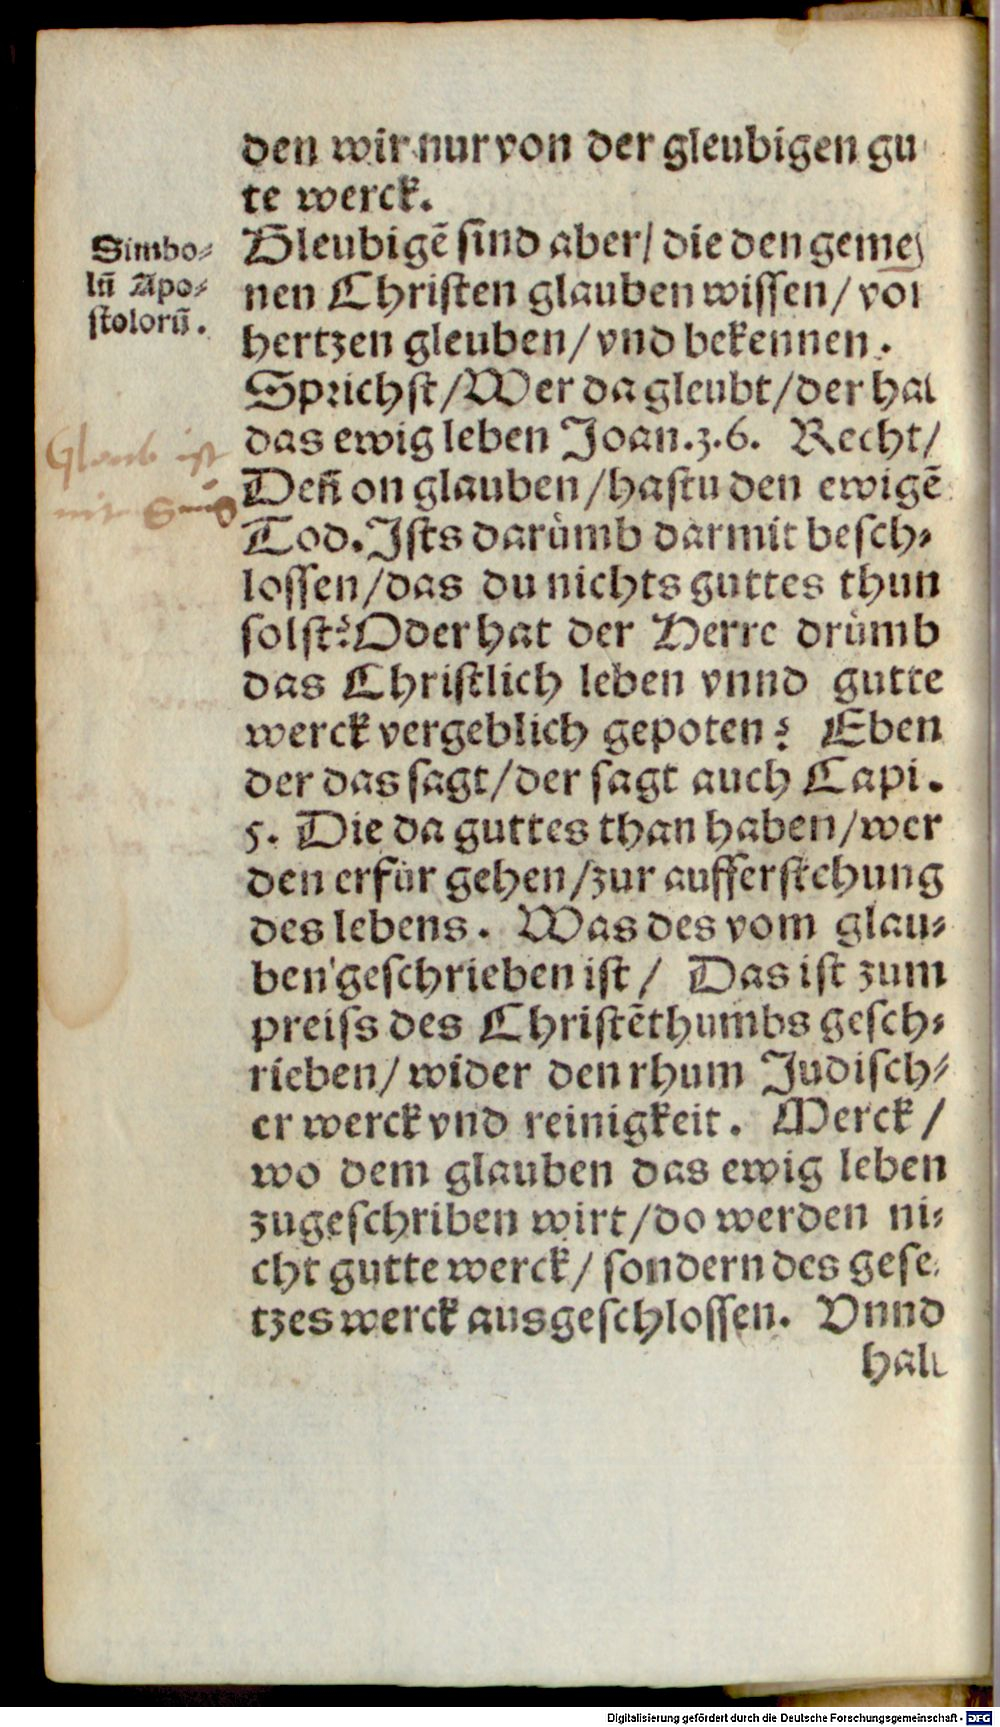 den wir nur von der gleubigen gu
te werck.
Gleubigē sind aber/ die den gemey
nen Christen glauben wissen/ von
hertzen gleuben/ vnd bekennen.
Simbo⸗
lū Apo⸗
stolorū.
Sprichst/Wer da gleubt/der hat
das ewig leben Joan.3.6. Recht/
Glaub ist
nit
Deñ on glauben/hastu den ewigē
Tod. Ists darumb darmit besch⸗
lossen/das du nichts guttes thun
solst? Oder hat der Herre drumb
das Christlich leben vnnd gutte
werck vergeblich gepoten? Eben
der das sagt/der sagt auch Capi.
5. Die da guttes than haben/wer
den erfur gehen/zur aufferstehung
des lebens. Was des vom glau⸗
ben geschrieben ist/ Das ist zum
preiss des Christēthumbs gesch⸗
rieben/ wider den rhum Judisch⸗
er werck vnd reinigkeit. Merck/
wo dem glauben das ewig leben
zugeschriben wirt/do werden ni⸗
cht gutte werck/ sondern des gese⸗
tzes werck ausgeschlossen. Vnnd
halt
Digitalisierung gefördert durch die Deutsche Forschungsgemeinschaft - DFG